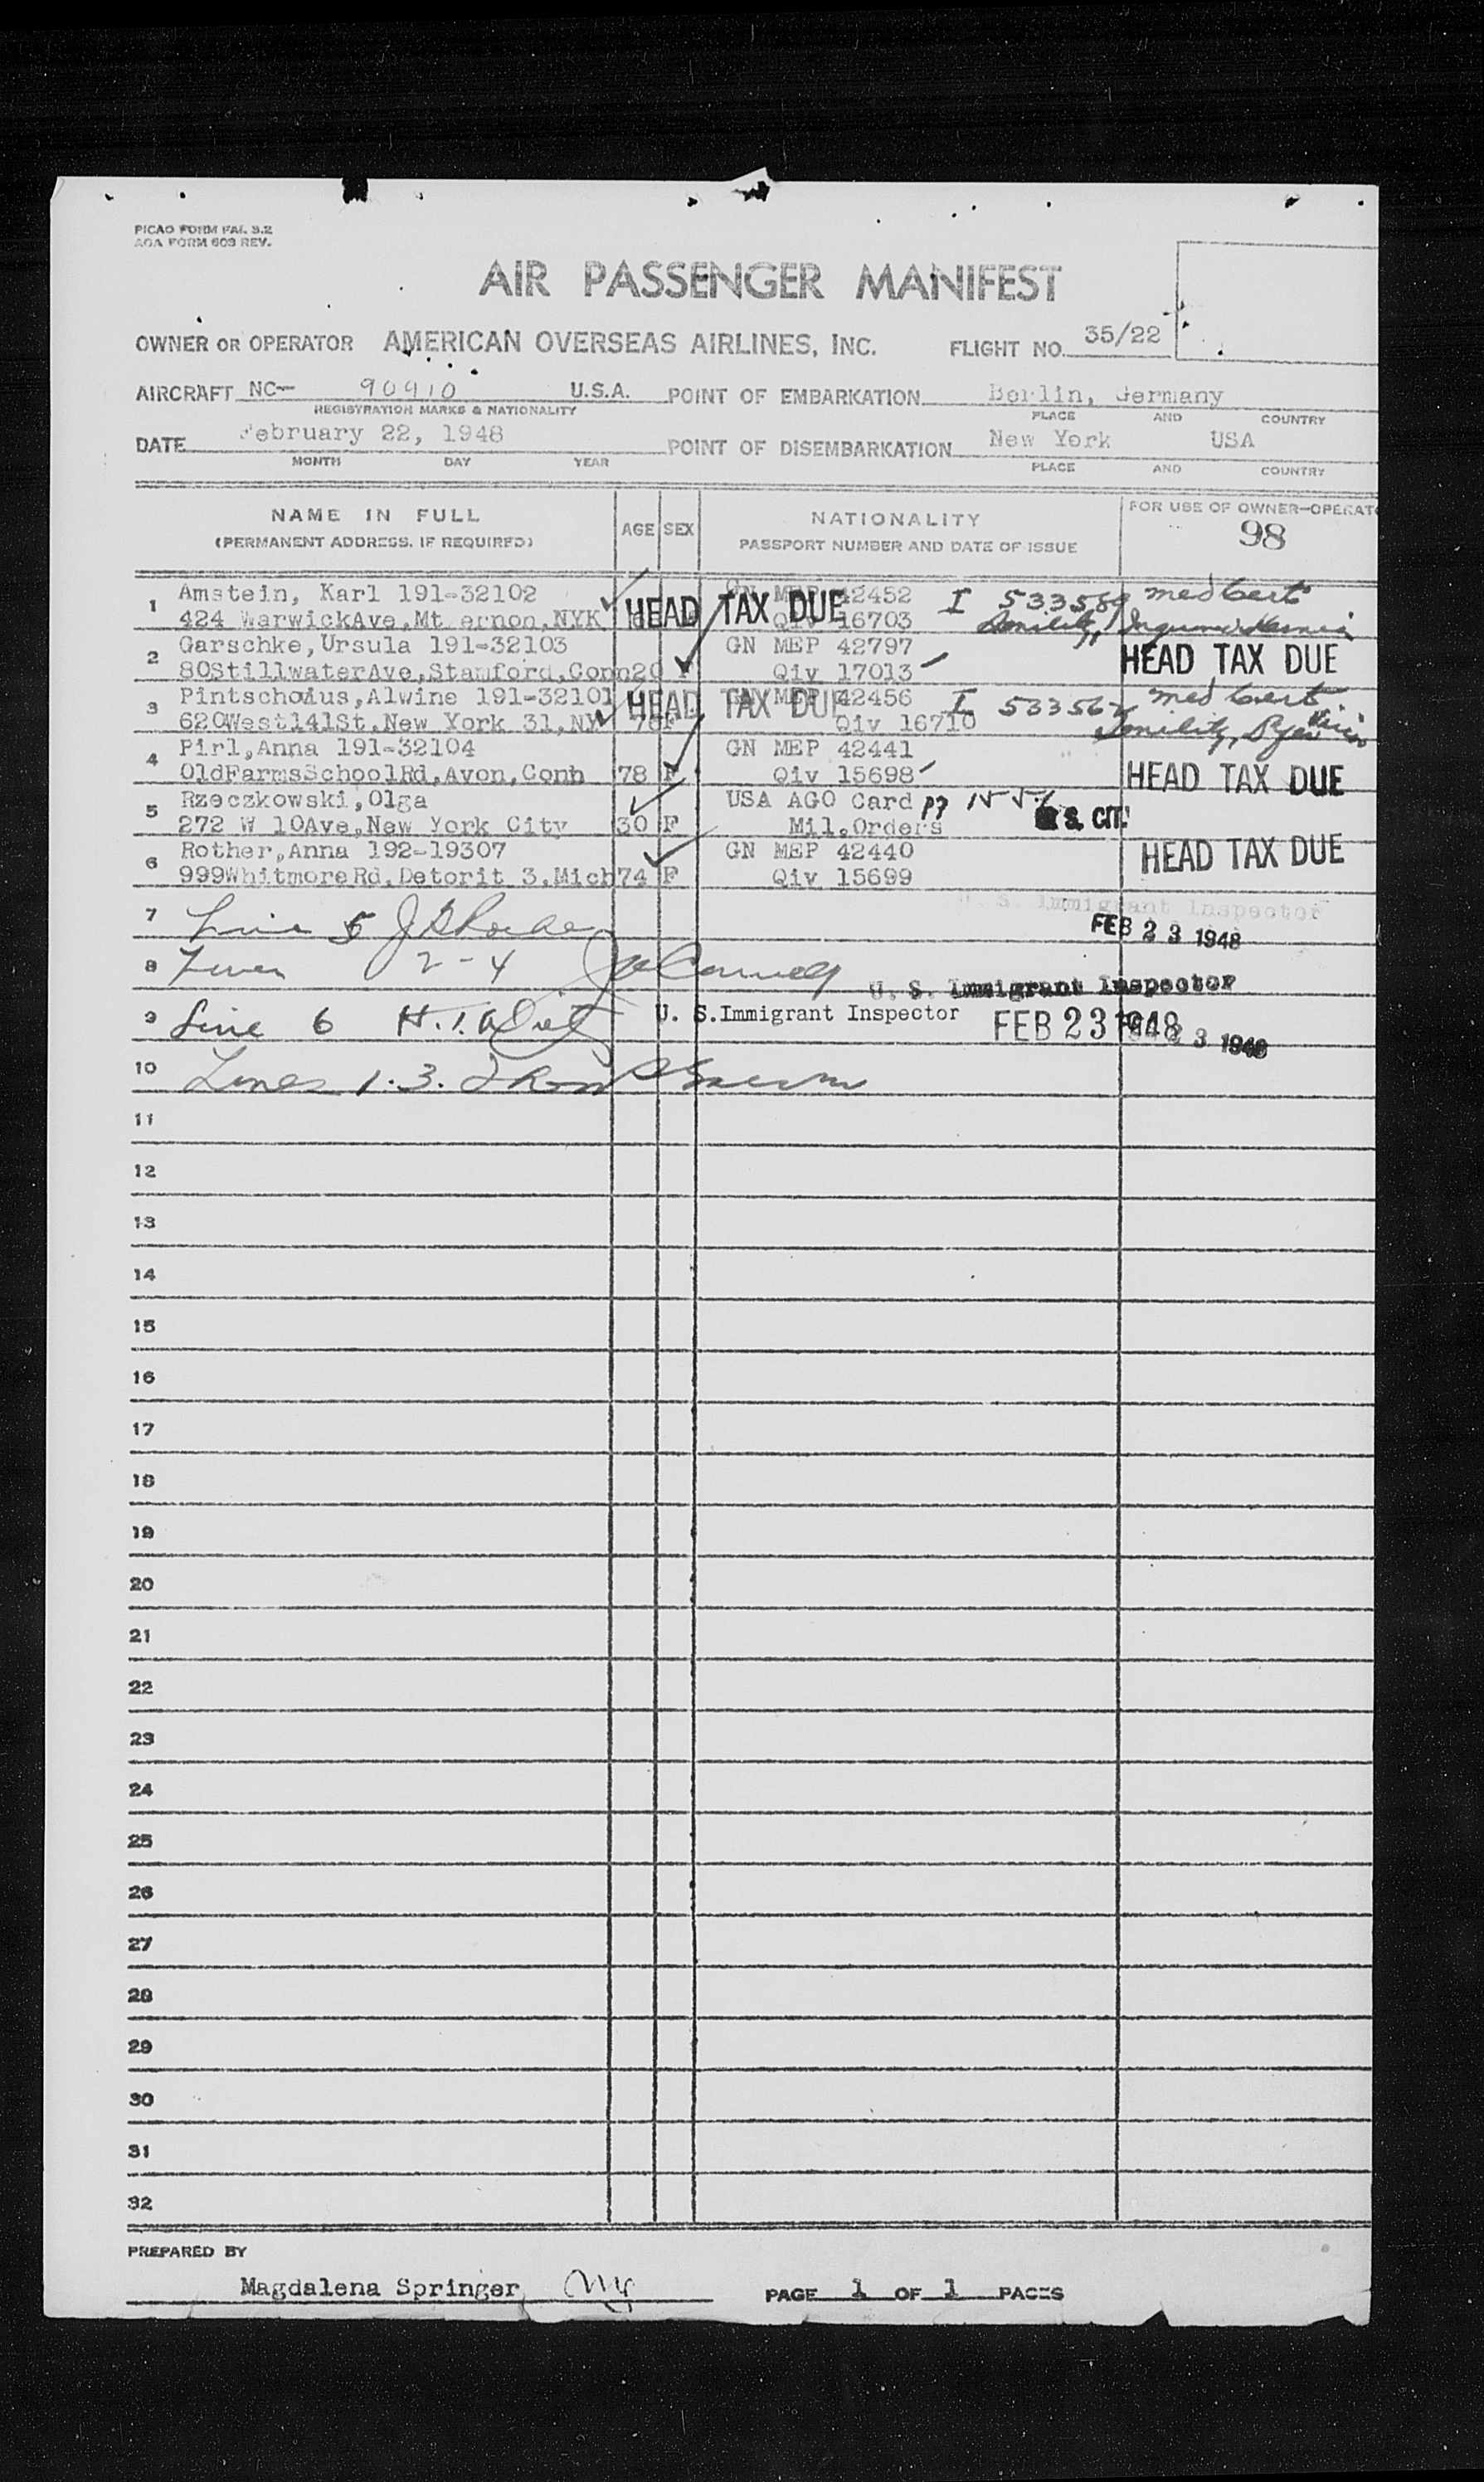 PICAO FORM FAL 3.2
AOA FORM 603 REV.
AIR PASSENGER MANIFEST
OWNER OR OPERATOR AMERICAN OVERSEAS AIRLINES, INC. FLIGHT NO. 35/22
AIRCRAFT NC- 90910 U.S.A. POINT OF EMBARKATION Berlin, Germany
REGISTRATION MARKS & NATIONALITY PLACE AND COUNTRY
DATE February 22, 1948 POINT OF DISEMBARKATION New York USA
MONTH DAY YEAR PLACE AND COUNTRY
NAME IN FULL AGE SEX NATIONALITY FOR USE OF OWNER-OPERAT
(PERMANENT ADDRESS, IF REQUIRED) PASSPORT NUMBER AND DATE OF ISSUE 98
1 Amstein, Karl 191-32102 GN MEP 42452 I 533589 med Cert
424 WarwickAve,Mt ernon,NYK HEAD TAX DUE Qiv 16703 Senility,
2 Garschke,Ursula 191-32103 GN MEP 42797
80StillwaterAve,Stamford,Conn20 F Qiv 17013 HEAD TAX DUE
3 Pintschoius,Alwine 191-32101 HEAD TAX DUE GN MEP 42456 I 53356 med Cert
620West141St,New York 31,NY 78 F Qiv 16710 Senility,
4 Pirl,Anna 191-32104 GN MEP 42441
OldFarmsSchoolRd,Avon,Conn 78 F Qiv 15698 HEAD TAX DUE
5 Rzeczkowski,Olga USA AGO Card
272 W 10Ave,New York City 30 F Mil.Orders S. CIT.
6 Rother,Anna 192-19307 GN MEP 42440 HEAD TAX DUE
999WhitmoreRd,Detorit 3,Mich 74 F Qiv 15699
U. S. Immigrant Inspector
7 Line 5 FEB 23 1948
8 Lines 2-4 U. S. Immigrant Inspector
9 Line 6 U. S.Immigrant Inspector FEB 23 1948 FEB 23 1948
10 Lines 1.3.
11
12
13
14
15
16
17
18
19
20
21
22
23
24
25
26
27
28
29
30
31
32
PREPARED BY
Magdalena Springer PAGE 1 OF 1 PAGES